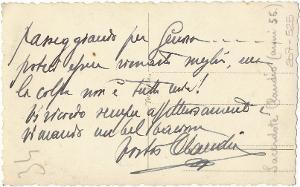 passeggiando per Genova ....
potrei esser venuto meglio, ma
la colpa non è tutta mia!
Vi ricordo sempre affettuosamente
vi mando un bel bacione
vostro Claudio
34
Sacerdote Claudio anni 56,